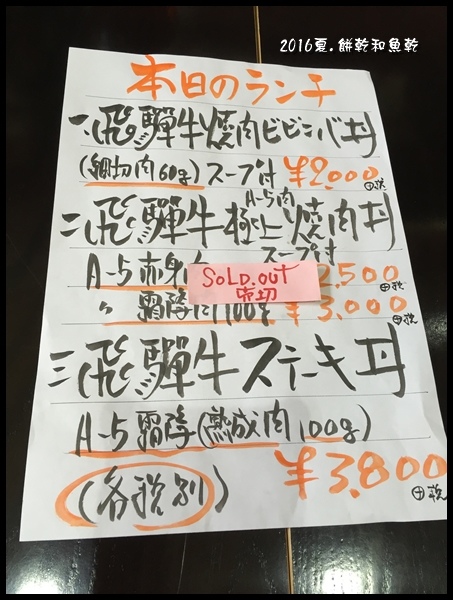 2016夏.餅乾和魚乾
本日のランチ
一.飛騨牛焼肉ビビンバ丼
(細切肉60g)スープ付 ¥2,000 +税
A-5肉
二飛騨牛極上焼肉丼
スープ付
A-5赤身 2,500 +税
SOLD.OUT
売切
〃 霜降肉100g ¥3,000 +税
三飛騨牛ステーキ丼
A-5霜降(熟成肉100g)
¥3,800 +税
(各税別)